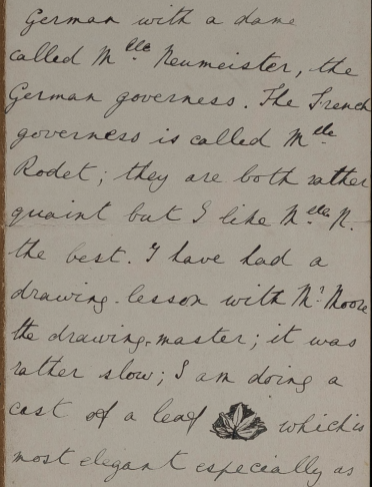 German with a dame
called Mlle. Neumeister, the
German governess. The French
governess is called Mlle.
Rodet; they are both rather
quaint but I like Mlle. N.
the best. I have had a
drawing-lesson with Mr. Moore
the drawing-master; it was
rather slow; I am doing a
cast of a leaf which is
most elegant especially as